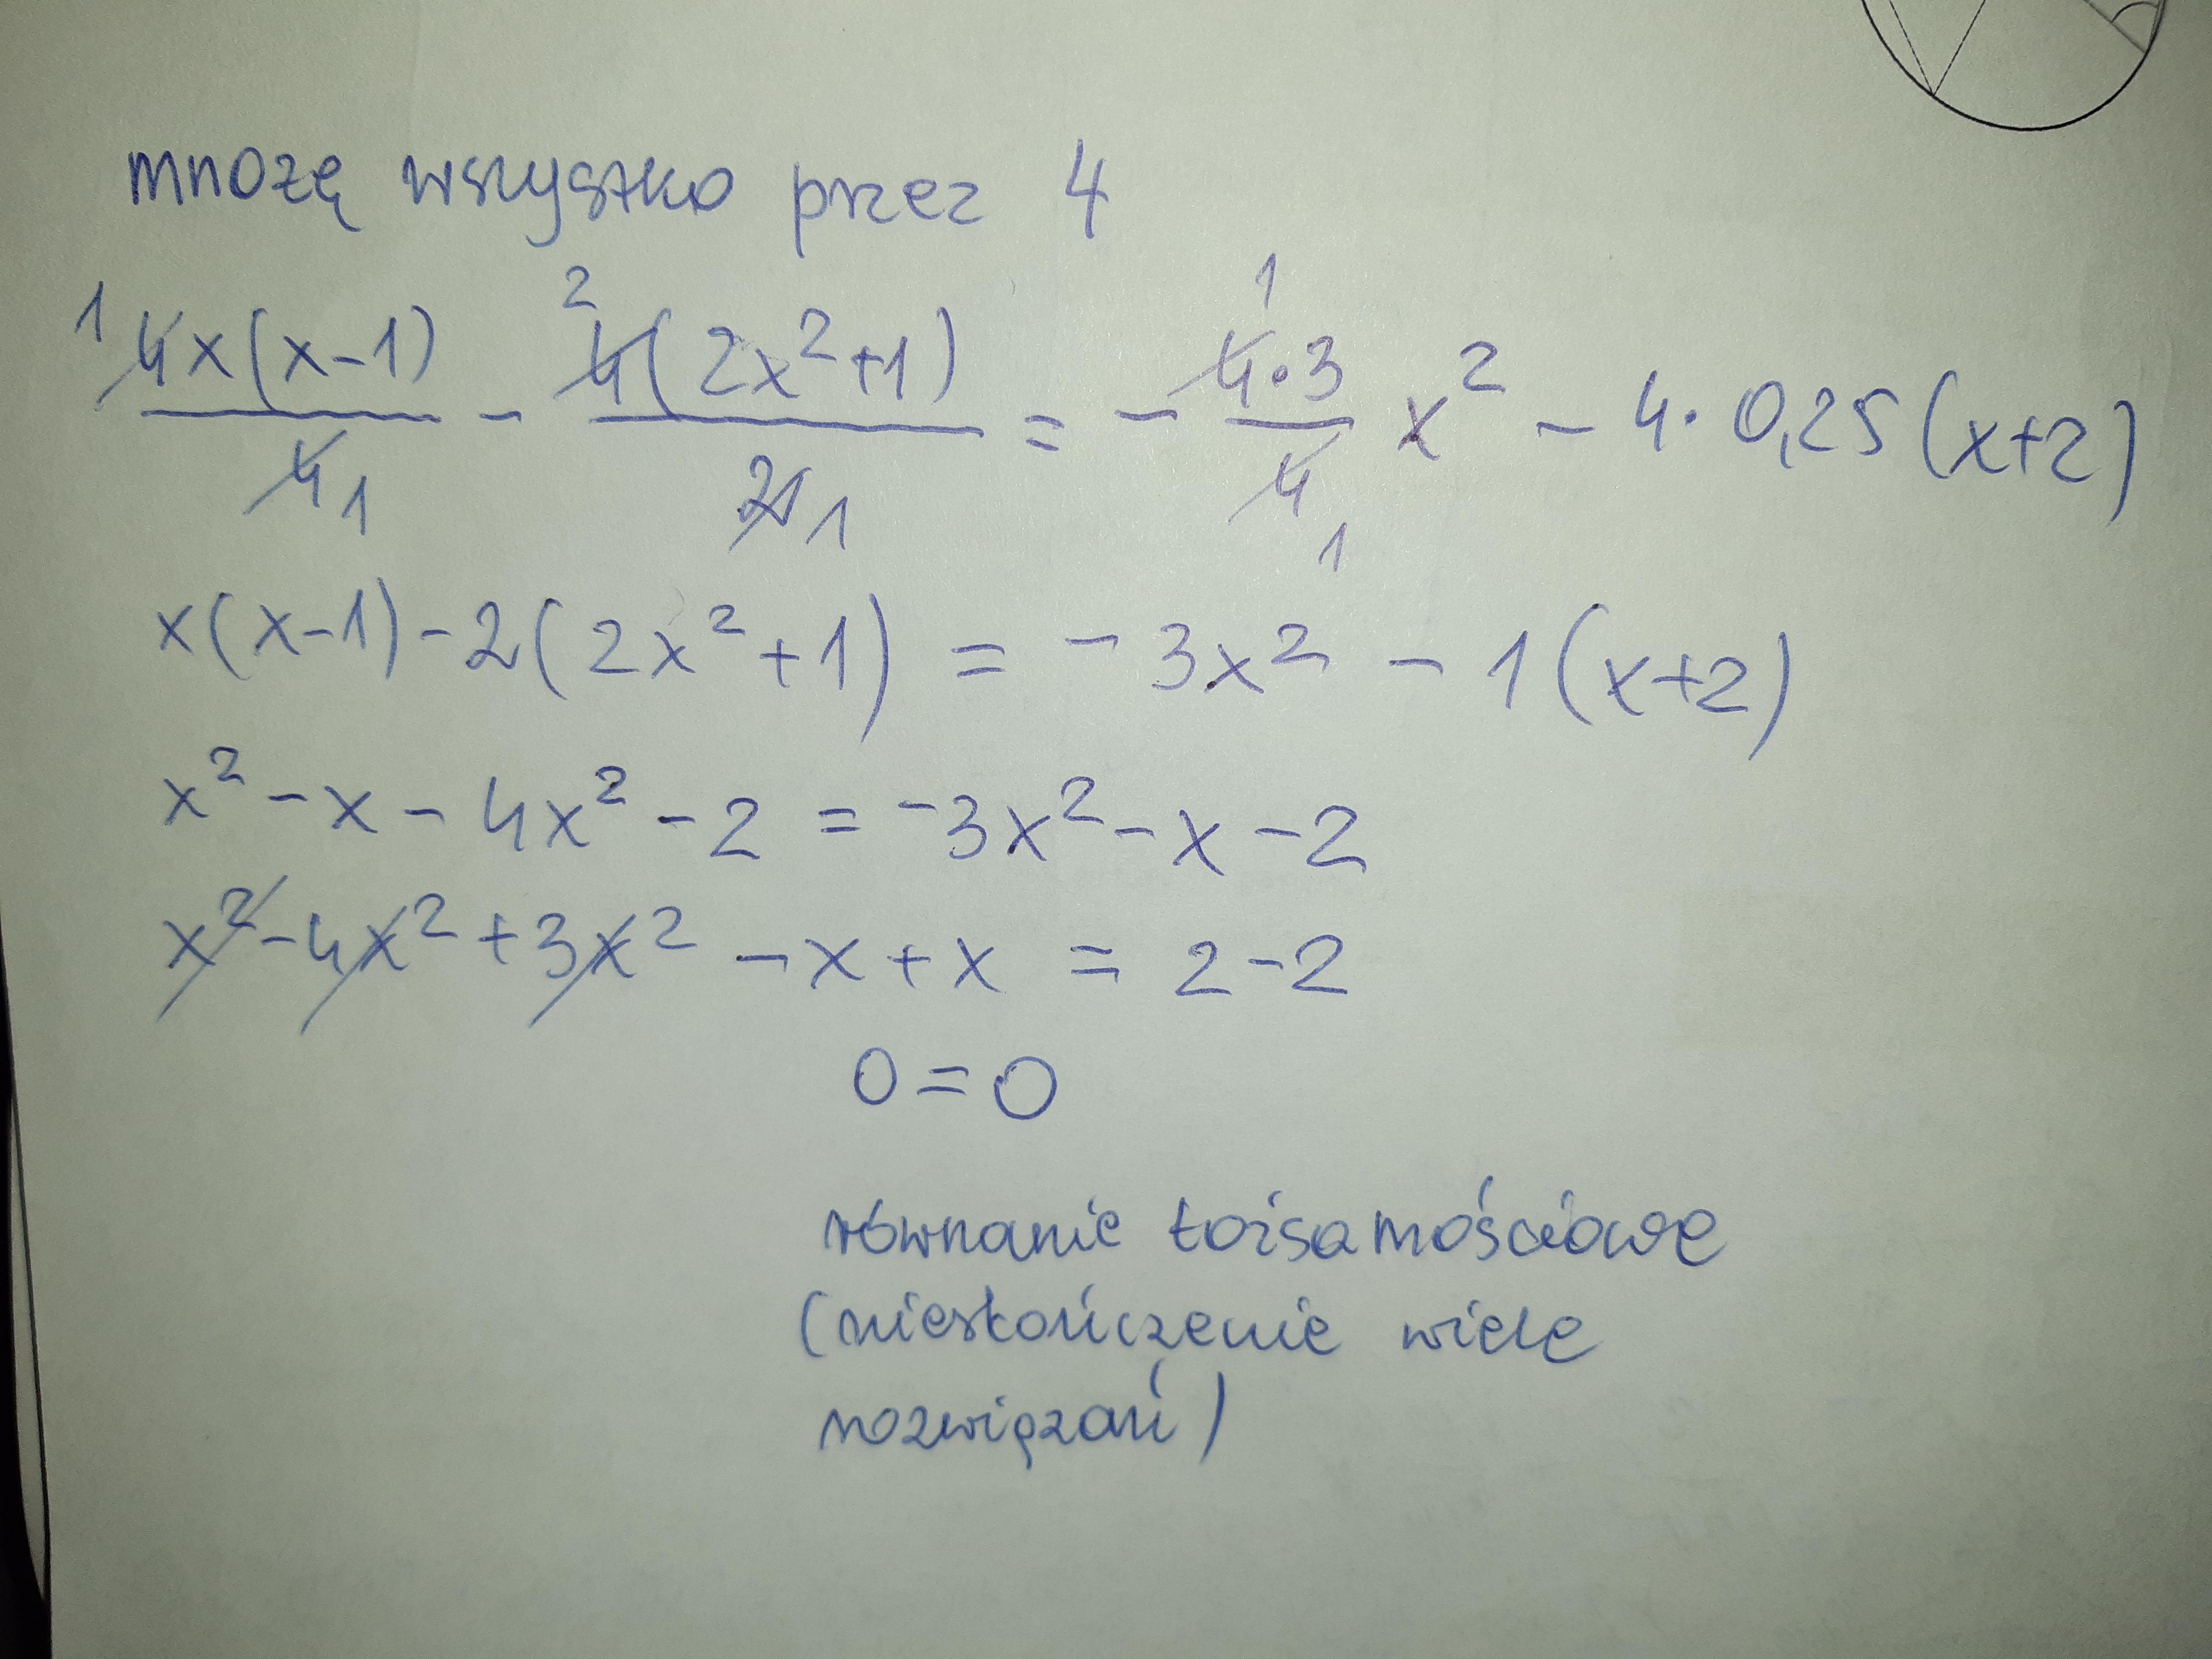 mnożę wszystko przez 4
1 4x(x-1)/4 1 - 2 4(2x²+1)/2 1 = - 1 4·3/4 1 x² - 4·0,25(x+2)
x(x-1)-2(2x²+1) = -3x² - 1(x+2)
x²-x-4x²-2 = -3x²-x-2
x²-4x²+3x²-x+x = 2-2
0=0
równanie tożsamościowe
(nieskończenie wiele
rozwiązań)